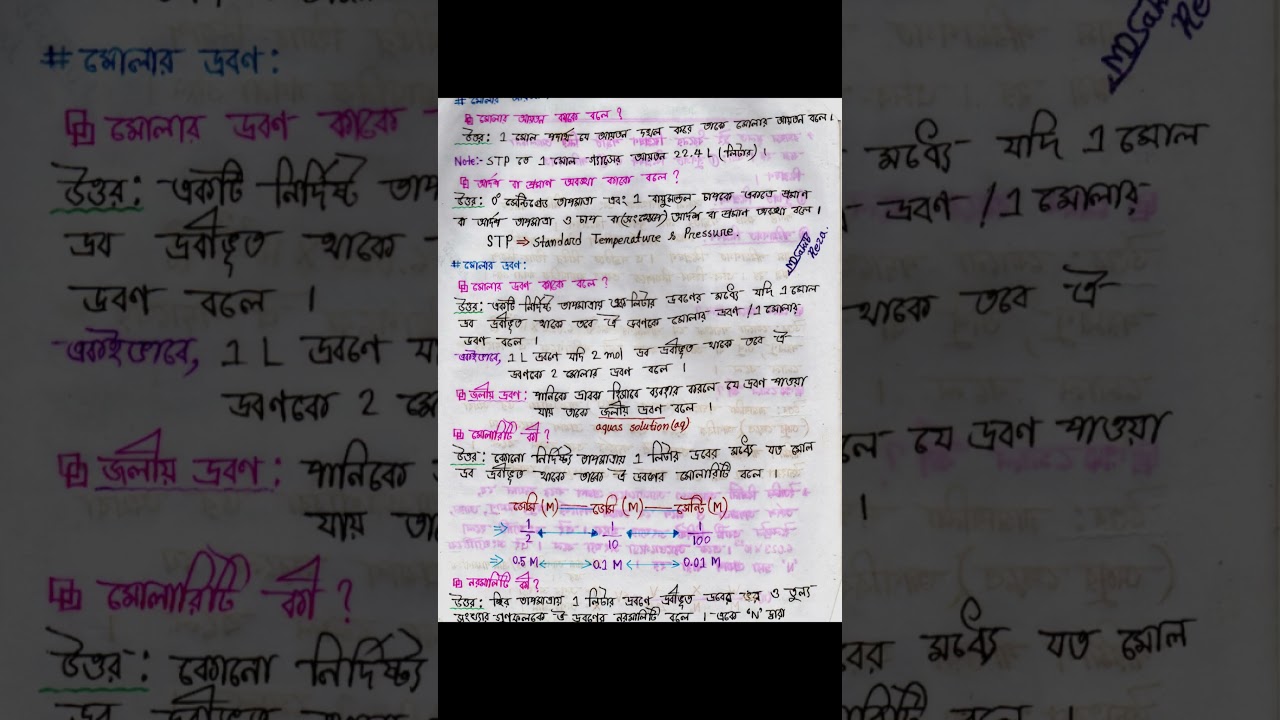 # মোলার
মোলার আয়তন কাকে বলে ?
উত্তর: 1 মোল পদার্থ যে আয়তন দখল করে তাকে মোলার আয়তন বলে।
Note:- STP তে 1 মোল গ্যাসের আয়তন 22.4 L (লিটার) ।
আদর্শ বা প্রমাণ অবস্থা কাকে বলে ?
উত্তর: 0° সেন্টিগ্রেড তাপমাত্রা এবং 1 বায়ুমন্ডল চাপকে একত্রে প্রমাণ
বা আদর্শ তাপমাত্রা ও চাপ বা (সংক্ষেপে) আদর্শ বা প্রমাণ অবস্থা বলে ।
STP ⇒ Standard Temperature & Pressure.
MD Sakib
Reza.
# মোলার দ্রবণ:
মোলার দ্রবণ কাকে বলে ?
উত্তর: একটি নির্দিষ্ট তাপমাত্রায় এক লিটার দ্রবণের মধ্যে যদি 1 মোল
দ্রব দ্রবীভূত থাকে তবে ঐ দ্রবণকে মোলার দ্রবণ /1 মোলার
দ্রবণ বলে ।
একইভাবে, 1 L দ্রবণে যদি 2 mol দ্রব দ্রবীভূত থাকে তবে ঐ
দ্রবণকে 2 মোলার দ্রবণ বলে ।
জলীয় দ্রবণ: পানিকে দ্রাবক হিসাবে ব্যবহার করলে যে দ্রবণ পাওয়া
যায় তাকে জলীয় দ্রবণ বলে ।
aquas solution (aq)
মোলারিটি কী ?
উত্তর: কোনো নির্দিষ্ট্য তাপমাত্রায় 1 লিটার দ্রবের মধ্যে যত মোল
দ্রব দ্রবীভূত থাকে তাকে ঐ দ্রবণের মোলারিটি বলে ।
সেমি (M) — ডেসি (M) — সেন্টি (M)
⇒ 1/2 ↔ 1/10 ↔ 1/100
⇒ 0.5 M ↔ 0.1 M ↔ 0.01 M
নরমালিটি কী ?
উত্তর: স্থির তাপমাত্রায় 1 লিটার দ্রবণে দ্রবীভূত দ্রবের ও তুল্য
সংখ্যার গুণফলকে ঐ দ্রবণের নরমালিটি বলে । একে 'N' দ্বারা